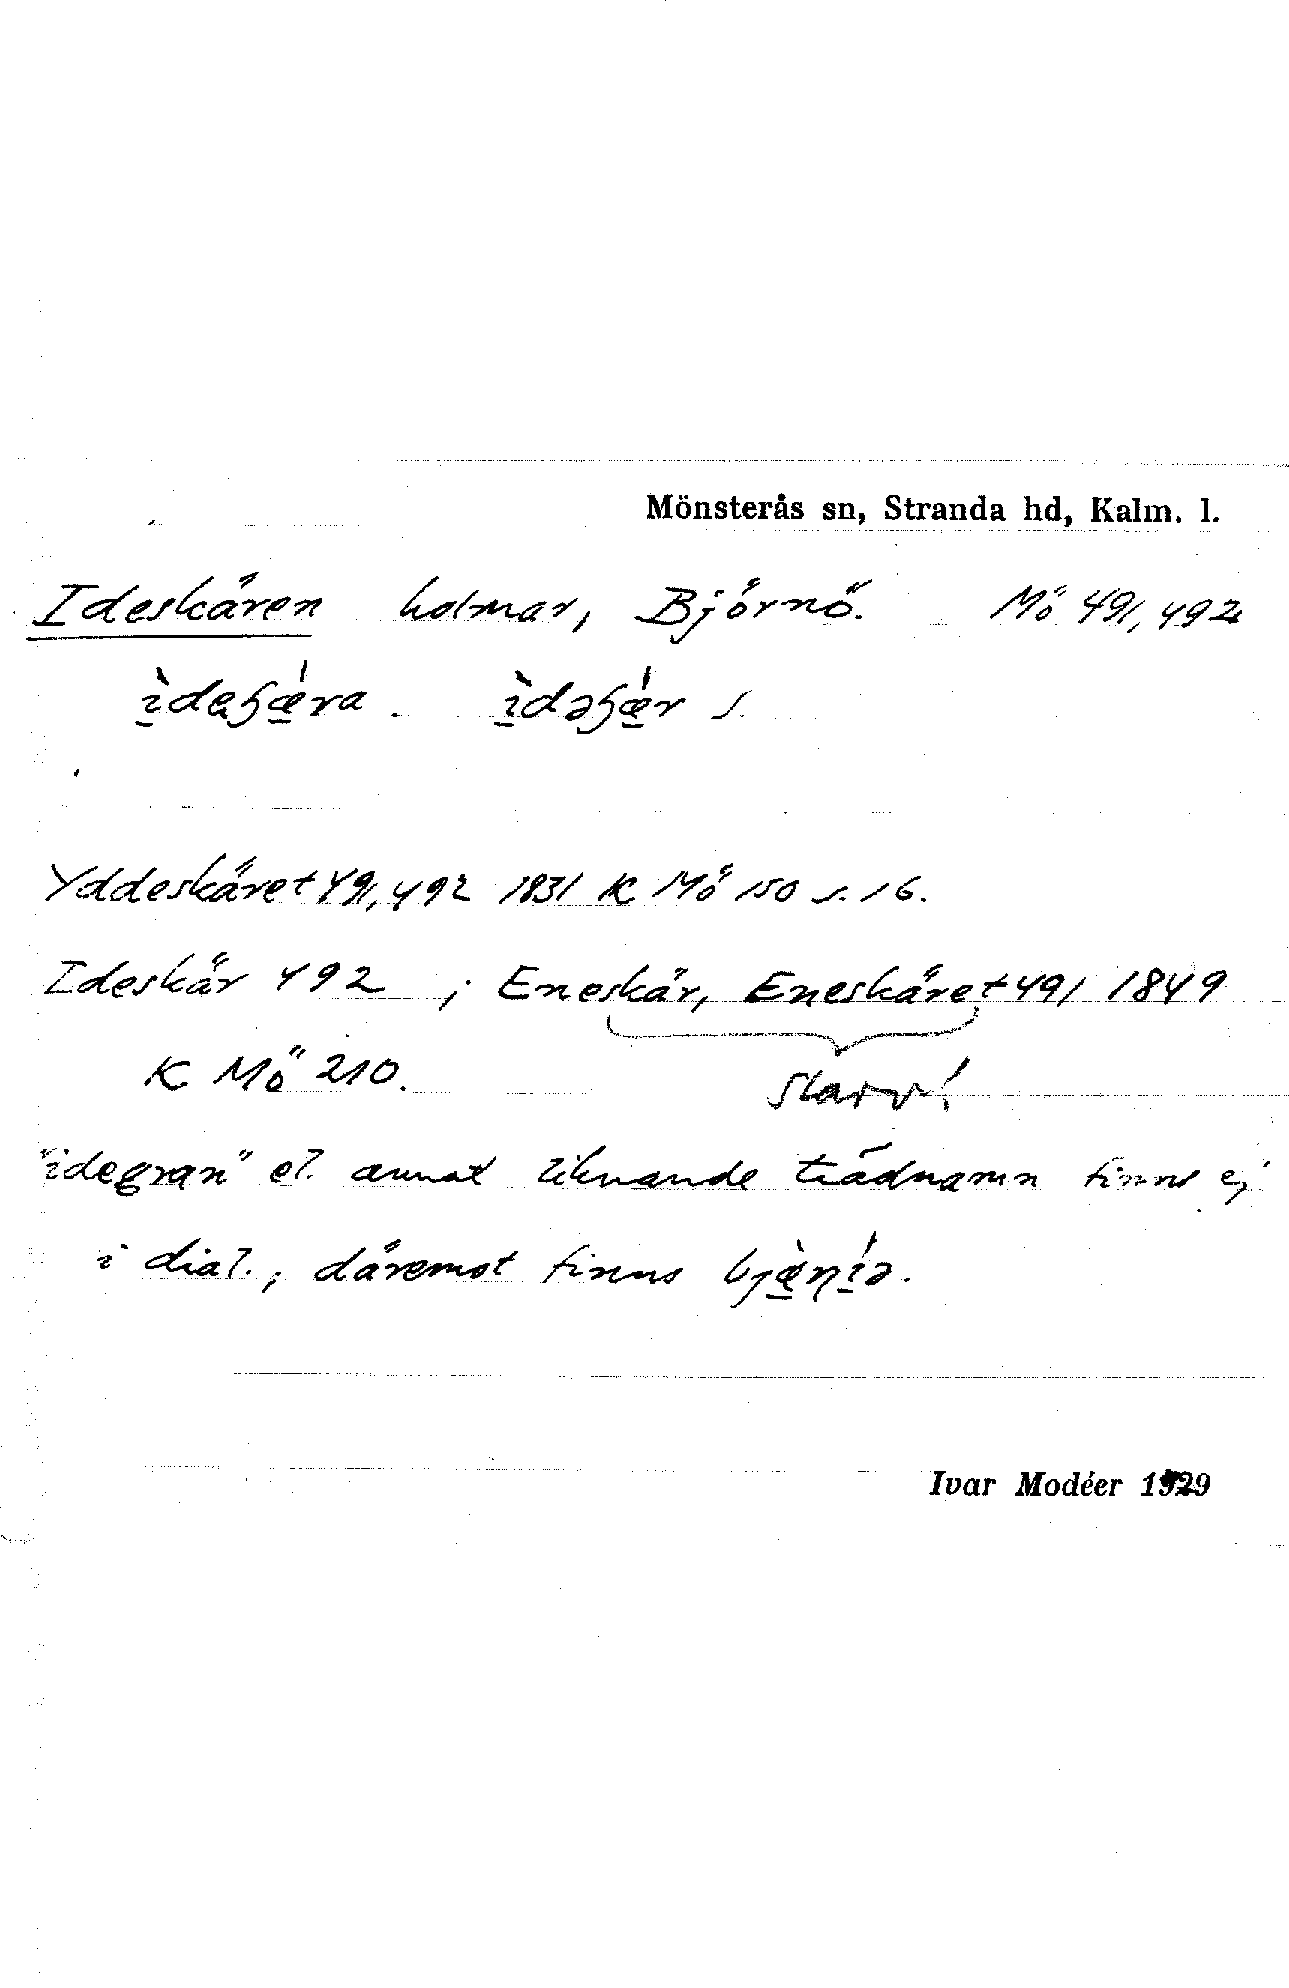 Mönsterås sn, Stranda hd, Kalm. l.
Ideskären holmar, Björnö. Mö 491, 492
ìdəɧǽra . ìdəɧǽr s.
Yddeskäret 491, 492 1831 K Mö 150 s. 16.
Ideskär 492 ; Eneskär, Eneskäret 491 1849
K Mö 210. slarv!
"idegran" el. annat liknande trädnamn finns ej
i dial., däremot finns
Ivar Modéer 1929